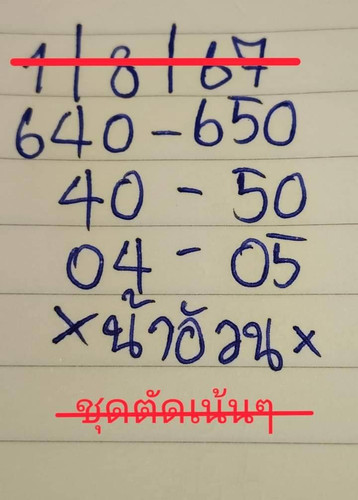 1|8|67
640-650
40-50
04-05
×น้าอ้วน×
ชุดตัดเน้นๆ